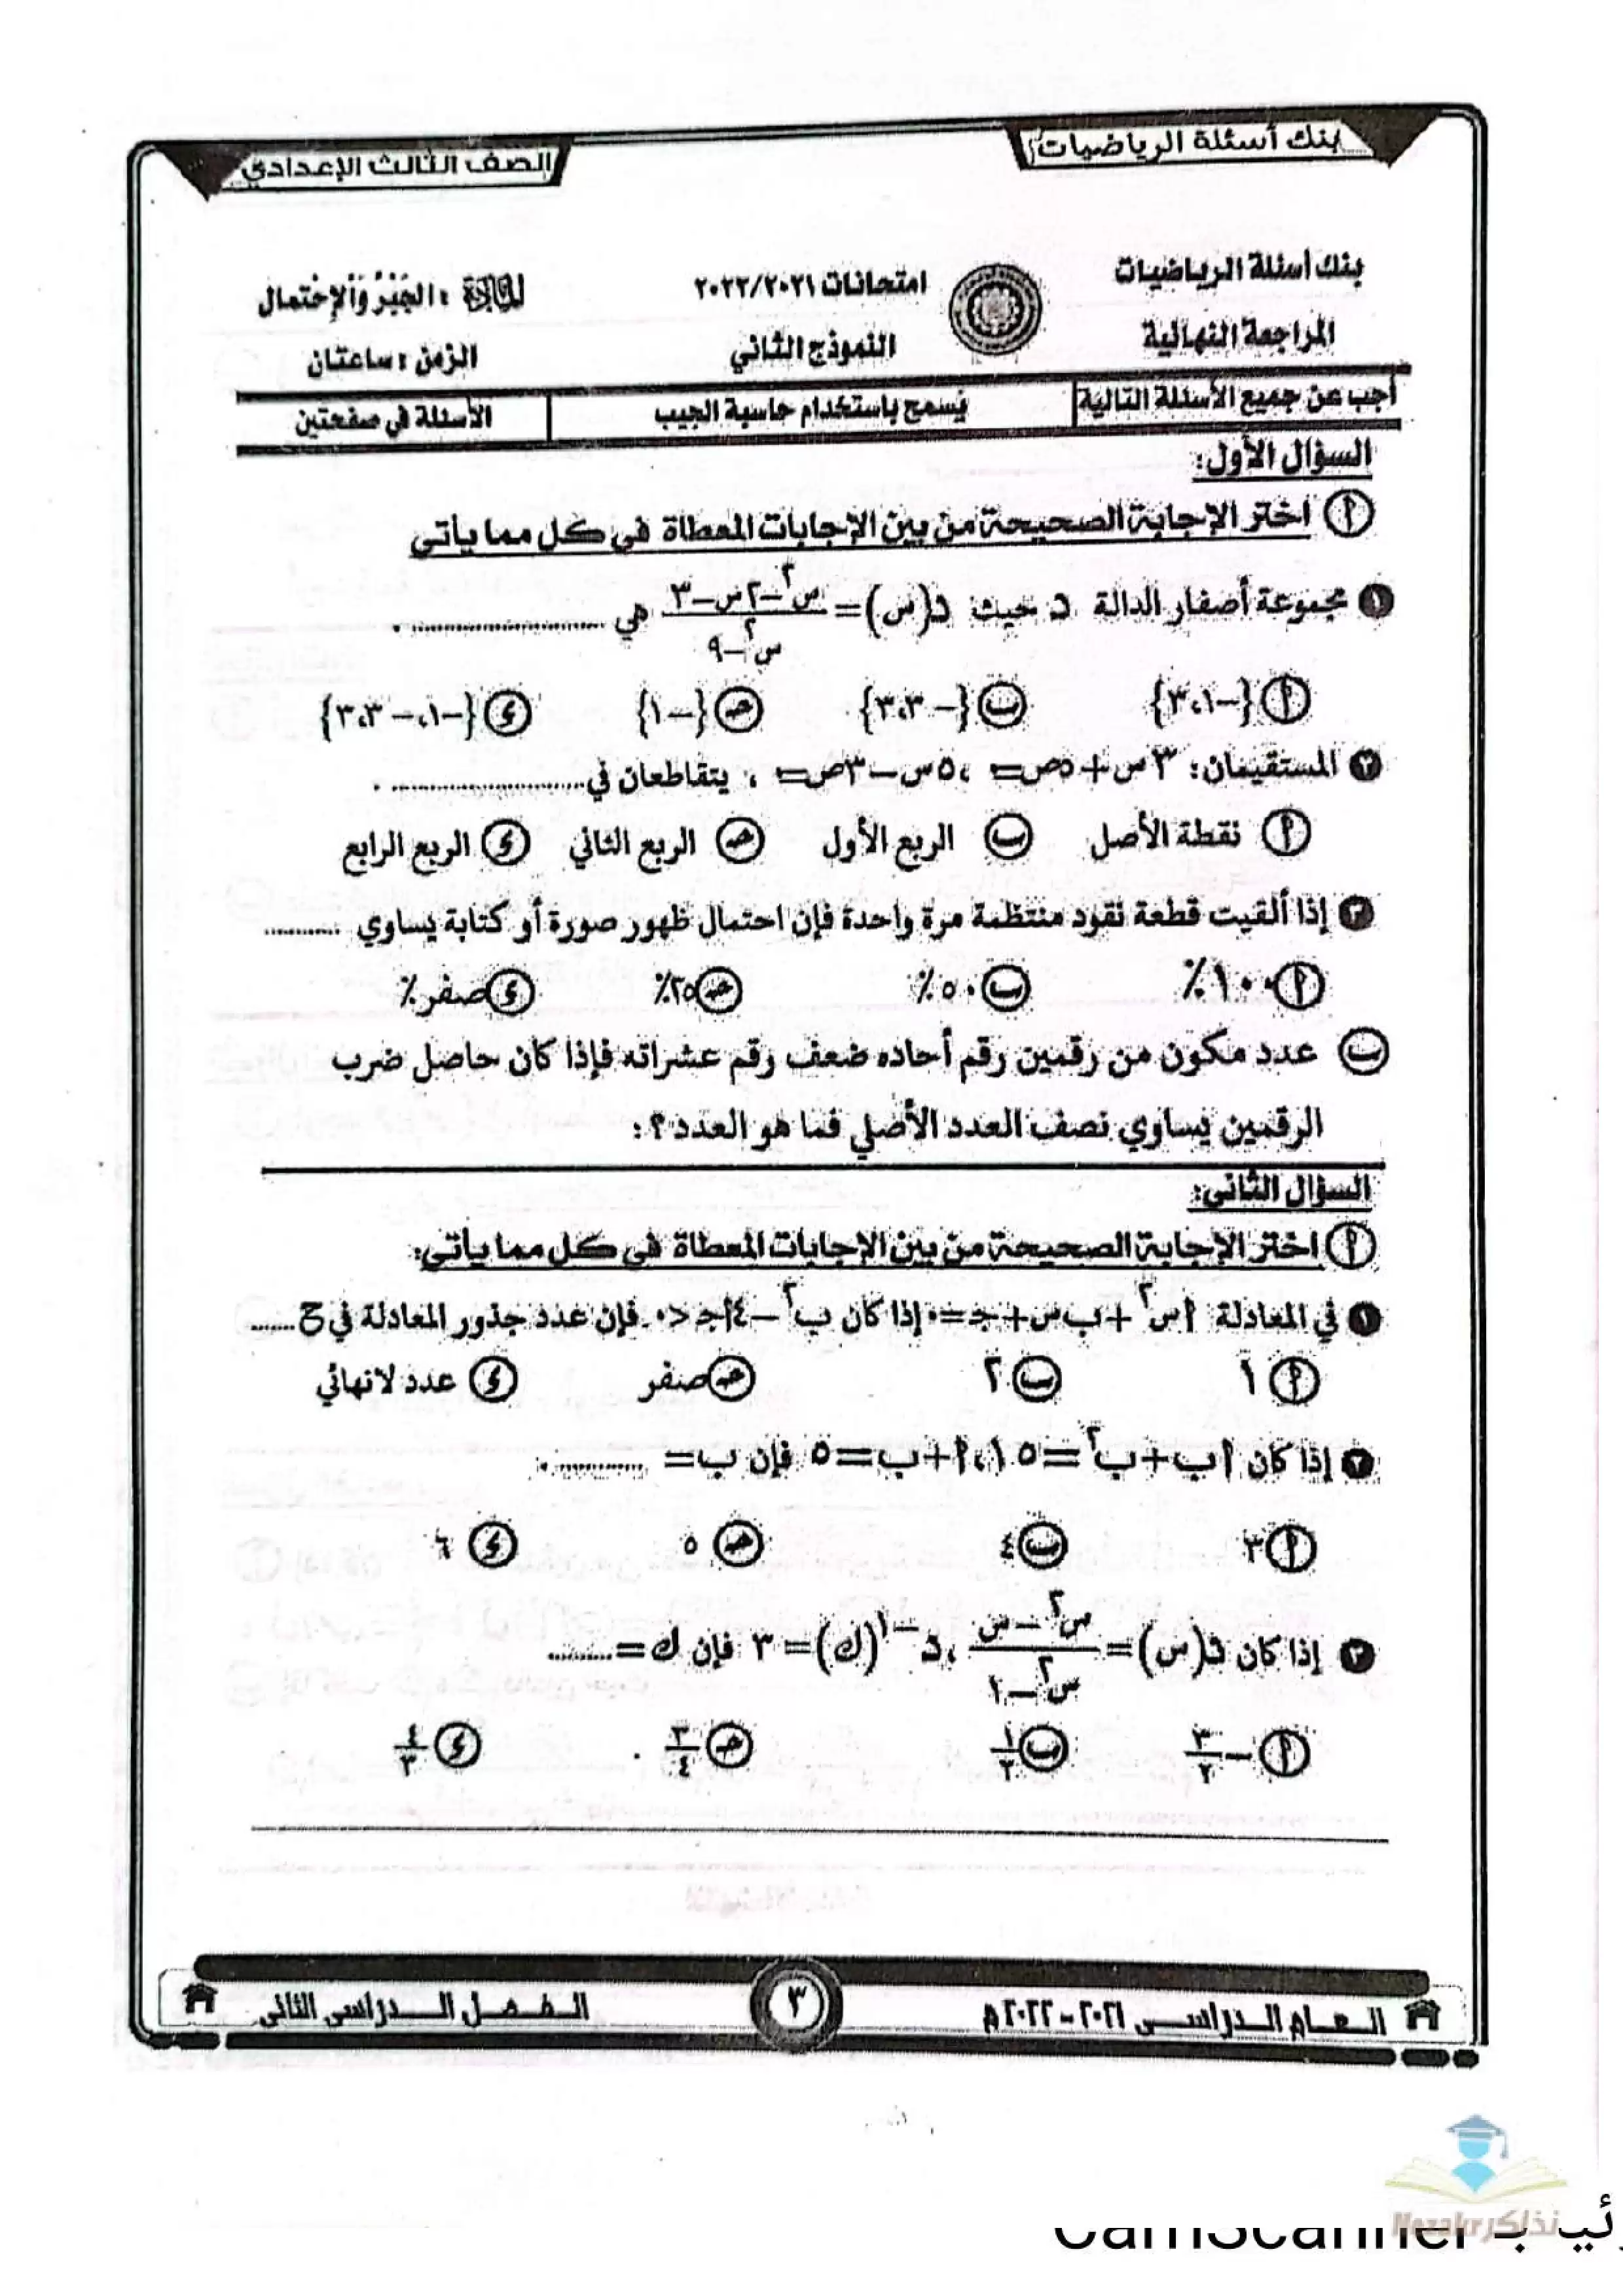 بنك أسئلة الرياضيات
الصف الثالث الإعدادي
بنك أسئلة الرياضيات
امتحانات ٢٠٢٢/٢٠٢١
المادة : الجَبْرُ وَالإحْتمال
المراجعة النهائية
النموذج الثاني
الزمن : ساعتان
أجب عن جميع الأسئلة التالية
يُسمح باستخدام حاسبة الجيب
الأسئلة في صفحتين
السؤال الأول:
أ اختر الإجابة الصحيحة من بين الإجابات المعطاة في كل مما يأتي
١ مجموعة أصفار الدالة د حيث د(س) = (س٢ – ٢س – ٣)/(س٢ – ٩) هي .................... .
أ {–١، ٣} ب {–٣، ٣} جـ {–١} د {–١، –٣، ٣}
٢ المستقيمان: ٣س + ٥ص = ، ٥س – ٣ص = ، يتقاطعان في .................... .
أ نقطة الأصل ب الربع الأول جـ الربع الثاني د الربع الرابع
٣ إذا ألقيت قطعة نقود منتظمة مرة واحدة فإن احتمال ظهور صورة أو كتابة يساوي ..........
أ ١٠٠٪ ب ٥٠٪ جـ ٢٥٪ د صفر٪
ب عدد مكون من رقمين رقم أحاده ضعف رقم عشراته فإذا كان حاصل ضرب
الرقمين يساوي نصف العدد الأصلي فما هو العدد؟ :
السؤال الثاني:
أ اختر الإجابة الصحيحة من بين الإجابات المعطاة في كل مما يأتي:
١ في المعادلة أس٢ + ب س + جـ = ٠ إذا كان ب٢ – ٤أجـ > ٠ فإن عدد جذور المعادلة في ح ......
أ ١ ب ٢ جـ صفر د عدد لا نهائي
٢ إذا كان أب + ب٢ = ١٥ ، أ + ب = ٥ فإن ب = ............ .
أ ٣ ب ٤ جـ ٥ د ٦
٣ إذا كان د(س) = (س٢ – س)/(س٢ – ١) ، د–١(ك) = ٣ فإن ك = .........
أ –٣/٢ ب ١/٢ جـ ٣/٤ د ٤/٣
العام الدراسي ٢٠٢١ - ٢٠٢٢م
٣
الفصل الدراسي الثاني
نذاكر Nezakr
CamScanner